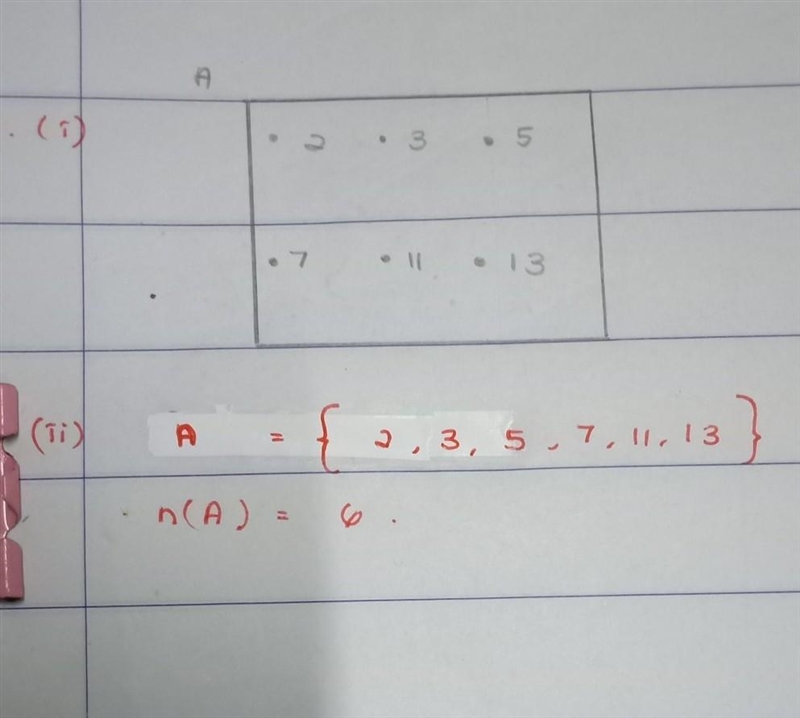 A
. (i) • 2 • 3 • 5
• 7 • 11 • 13
(ii) A = { 2, 3, 5, 7, 11, 13 }
n(A) = 6.